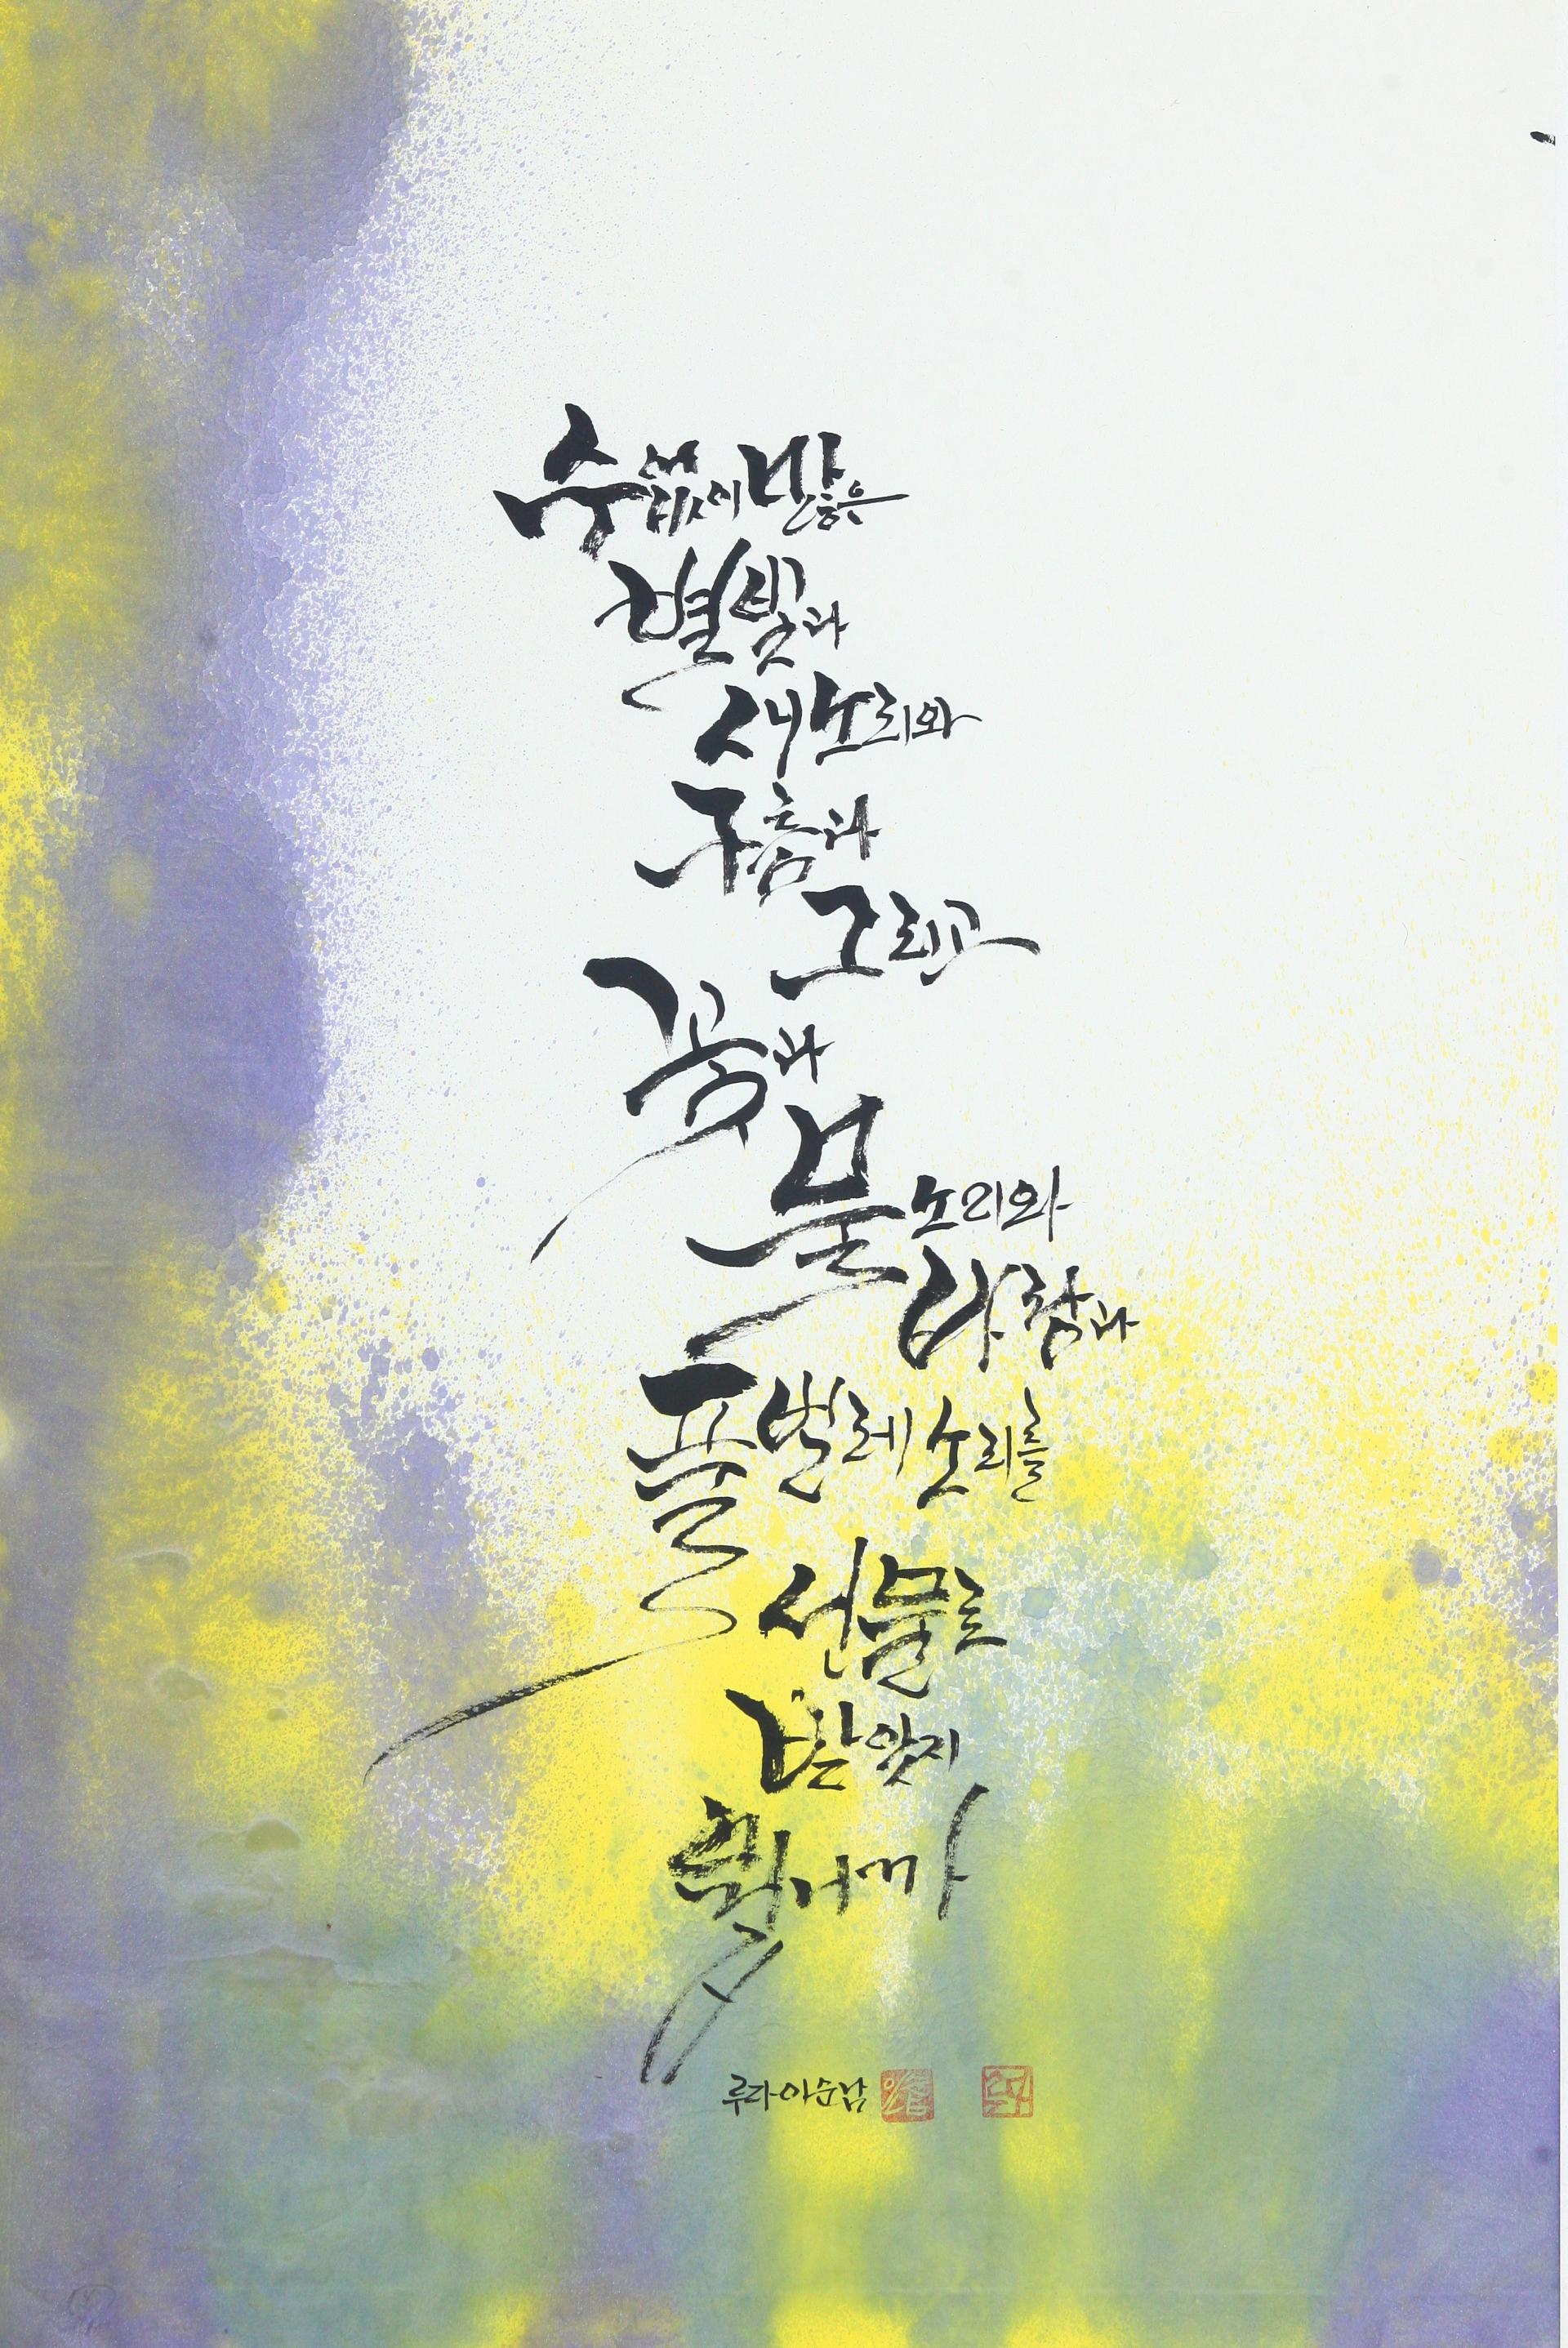 수없이 많은
별빛과
새소리와
구름과
그리고
꽃과
물소리와
바람과
풀벌레 소리를
선물로
받았지
뭡니까
루다 이순남